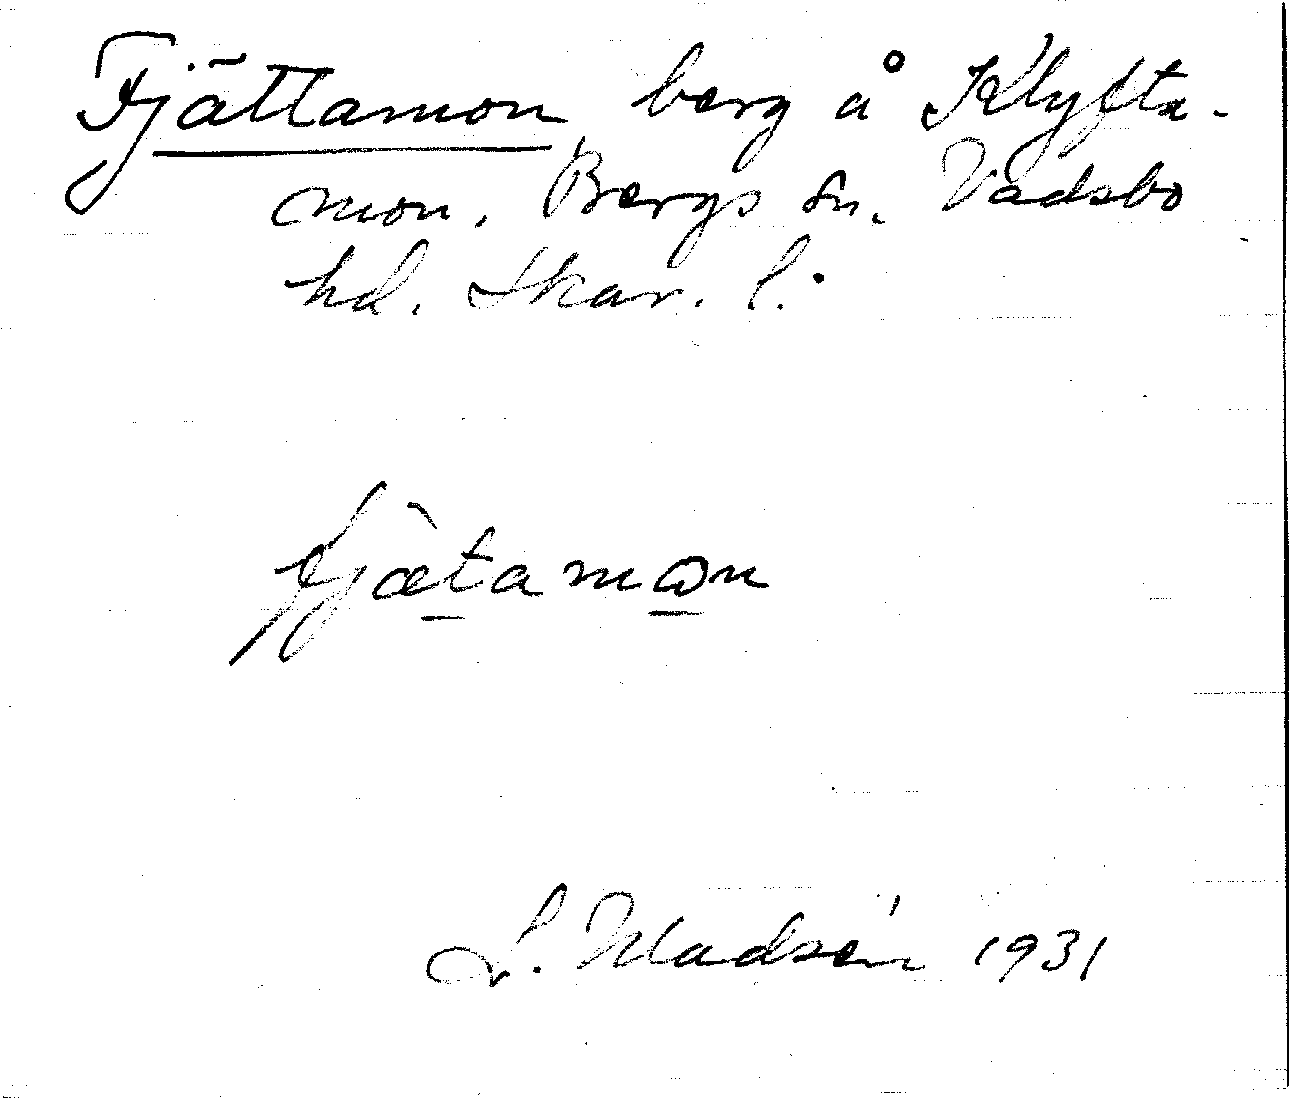 Fjättamon berg å Klyfta-
mon. Bergs sn. Vadsbo
hd. Skar. l.
fjæ̀tamωn
L. Wadsén 1931